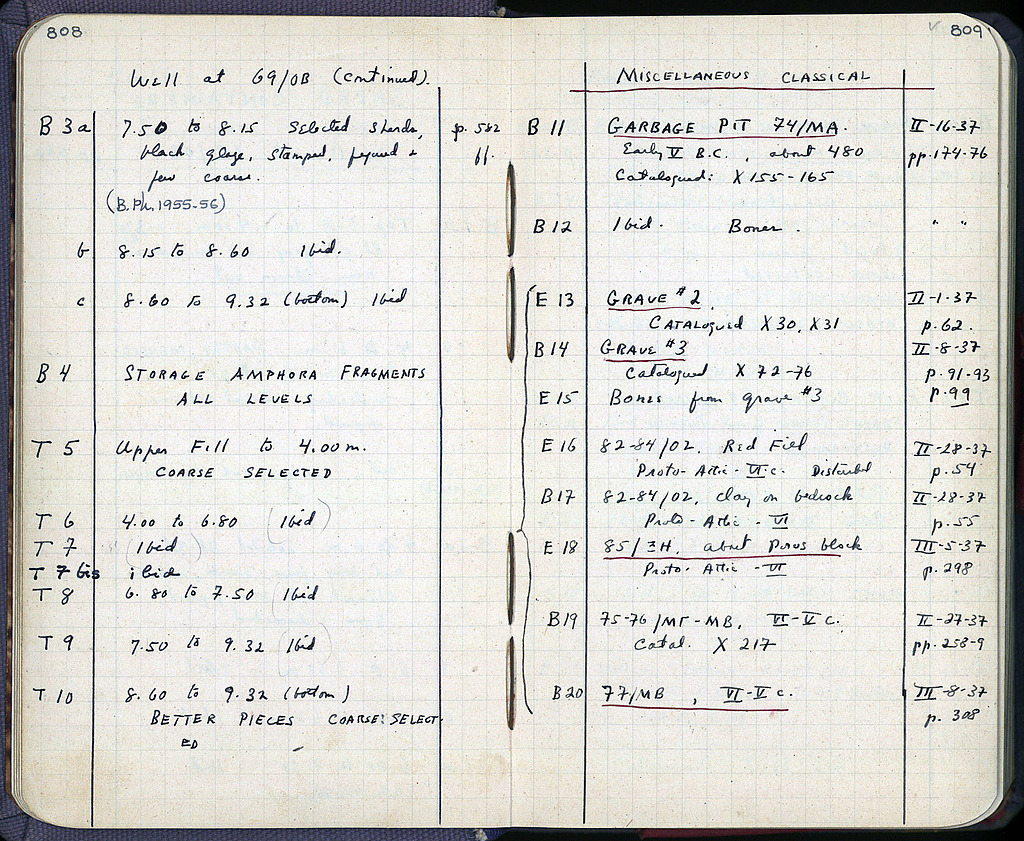 808
Well at 69/OB (continued).
B 3a 7.50 to 8.15 Selected sherds, p. 582
black glaze, stamped, figured & ff.
few coarse.
(B.Ph. 1955-56)
b 8.15 to 8.60 Ibid.
c 8.60 to 9.32 (bottom) Ibid
B 4 STORAGE AMPHORA FRAGMENTS
ALL LEVELS
T 5 Upper Fill to 4.00 m.
COARSE SELECTED
T 6 4.00 to 6.80 (Ibid)
T 7 (Ibid)
T 7 bis ibid
T 8 6.80 to 7.50 (Ibid
T 9 7.50 to 9.32 Ibid)
T 10 8.60 to 9.32 (bottom)
BETTER PIECES COARSE: SELECT-
ED
809
MISCELLANEOUS CLASSICAL
B 11 GARBAGE PIT 74/MA. II-16-37
Early V B.C., about 480 pp. 174-76
Catalogued: X 155-165
B 12 Ibid. Bones. " "
E 13 GRAVE #2 II-1-37
CATALOGUED X 30, X 31 p. 62.
B 14 GRAVE #3 II-8-37
Catalogued X 72-76 p. 91-93
E 15 Bones from grave #3 p. 99
E 16 82-84/02, Red Fill II-28-37
Proto-Attic - VI c. Disturbed p. 54
B 17 82-84/02, clay on bedrock II-28-37
Proto-Attic - VI p. 55
E 18 85/ΞH, about Poros block III-5-37
Proto-Attic - VI p. 298
B 19 75-76/ΜΓ-MB, VI-V c. II-27-37
Catal. X 217 pp. 258-9
B 20 77/MB, VI-V c. III-8-37
p. 308